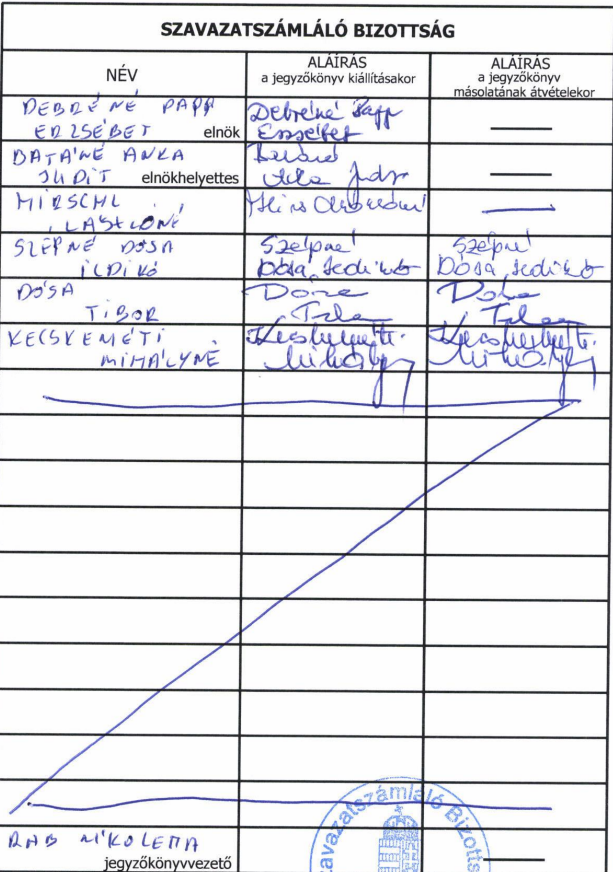 SZAVAZATSZÁMLÁLÓ BIZOTTSÁG
NÉV
ALÁÍRÁS
a jegyzőkönyv kiállításakor
ALÁÍRÁS
a jegyzőkönyv
másolatának átvételekor
DEBRÉNÉ PAPP
ERZSÉBET elnök
Debréné Papp
Erzsébet
BATÁNÉ ANKA
JUDIT elnökhelyettes
HIRSCHL
LÁSZLÓNÉ
SZÉPNÉ DÓSA
ILDIKÓ
Szépné
Dósa Ildikó
Szépné
Dósa Ildikó
DÓSA
TIBOR
KECSKEMÉTI
MIHÁLYNÉ
Kecskeméti
RAB NIKOLETTA
jegyzőkönyvvezető